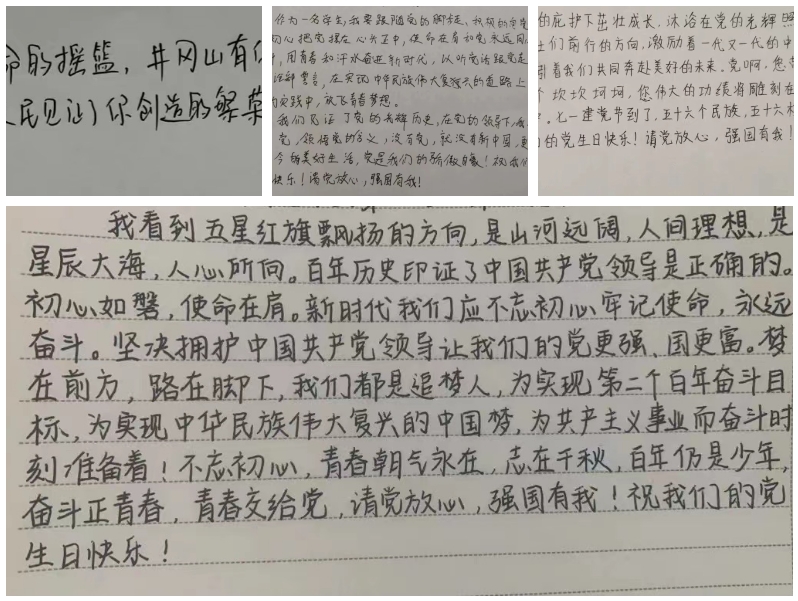 命的摇篮,井冈山有你
人民见证了你创造的繁荣
作为一名学生,我要跟随党的脚步,积极向党
初心把党摆在心头正中,使命在肩和党永远同
,用青春和汗水奋进新时代,以听党话跟党走
铮铮誓言,在实现中华民族伟大复兴的道路上
实践中,放飞青春梦想。
我们见证了党的光辉历史,在党的领导下,
党,领悟党的含义,没有党,就没有新中国,更
今的美好生活,党是我们的骄傲自豪!祝我们
快乐!请党放心,强国有我!
的庇护下茁壮成长,沐浴在党的光辉照
们前行的方向,激励着一代又一代的中
着我们共同奔赴美好的未来。党啊,您
个坎坎坷坷,您伟大的功绩将雕刻在
。七一建党节到了,五十六个民族,五十六
的党生日快乐!请党放心,强国有我!
我看到五星红旗飘扬的方向,是山河远阔,人间理想,是
星辰大海,人心所向。百年历史印证了中国共产党领导是正确的。
初心如磐,使命在肩。新时代我们应不忘初心牢记使命,永远
奋斗。坚决拥护中国共产党领导让我们的党更强、国更富。梦
在前方,路在脚下,我们都是追梦人,为实现第二个百年奋斗目
标,为实现中华民族伟大复兴的中国梦,为共产主义事业而奋斗时
刻准备着!不忘初心,青春朝气永在,志在千秋,百年仍是少年,
奋斗正青春,青春交给党,请党放心,强国有我!祝我们的党
生日快乐!